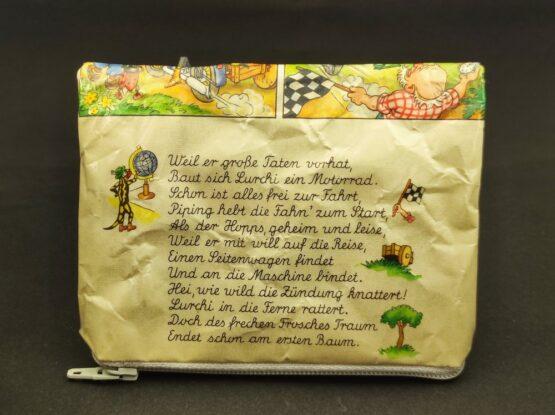 Weil er große Taten vorhat,
Baut sich Lurchi ein Motorrad.
Schon ist alles frei zur Fahrt,
Piping hebt die Fahn' zum Start,
Als der Hopps, geheim und leise,
Weil er mit will auf die Reise,
Einen Seitenwagen findet
Und an die Maschine bindet.
Hei, wie wild die Zündung knattert!
Lurchi in die Ferne rattert.
Doch des frechen Frosches Traum
Endet schon am ersten Baum.